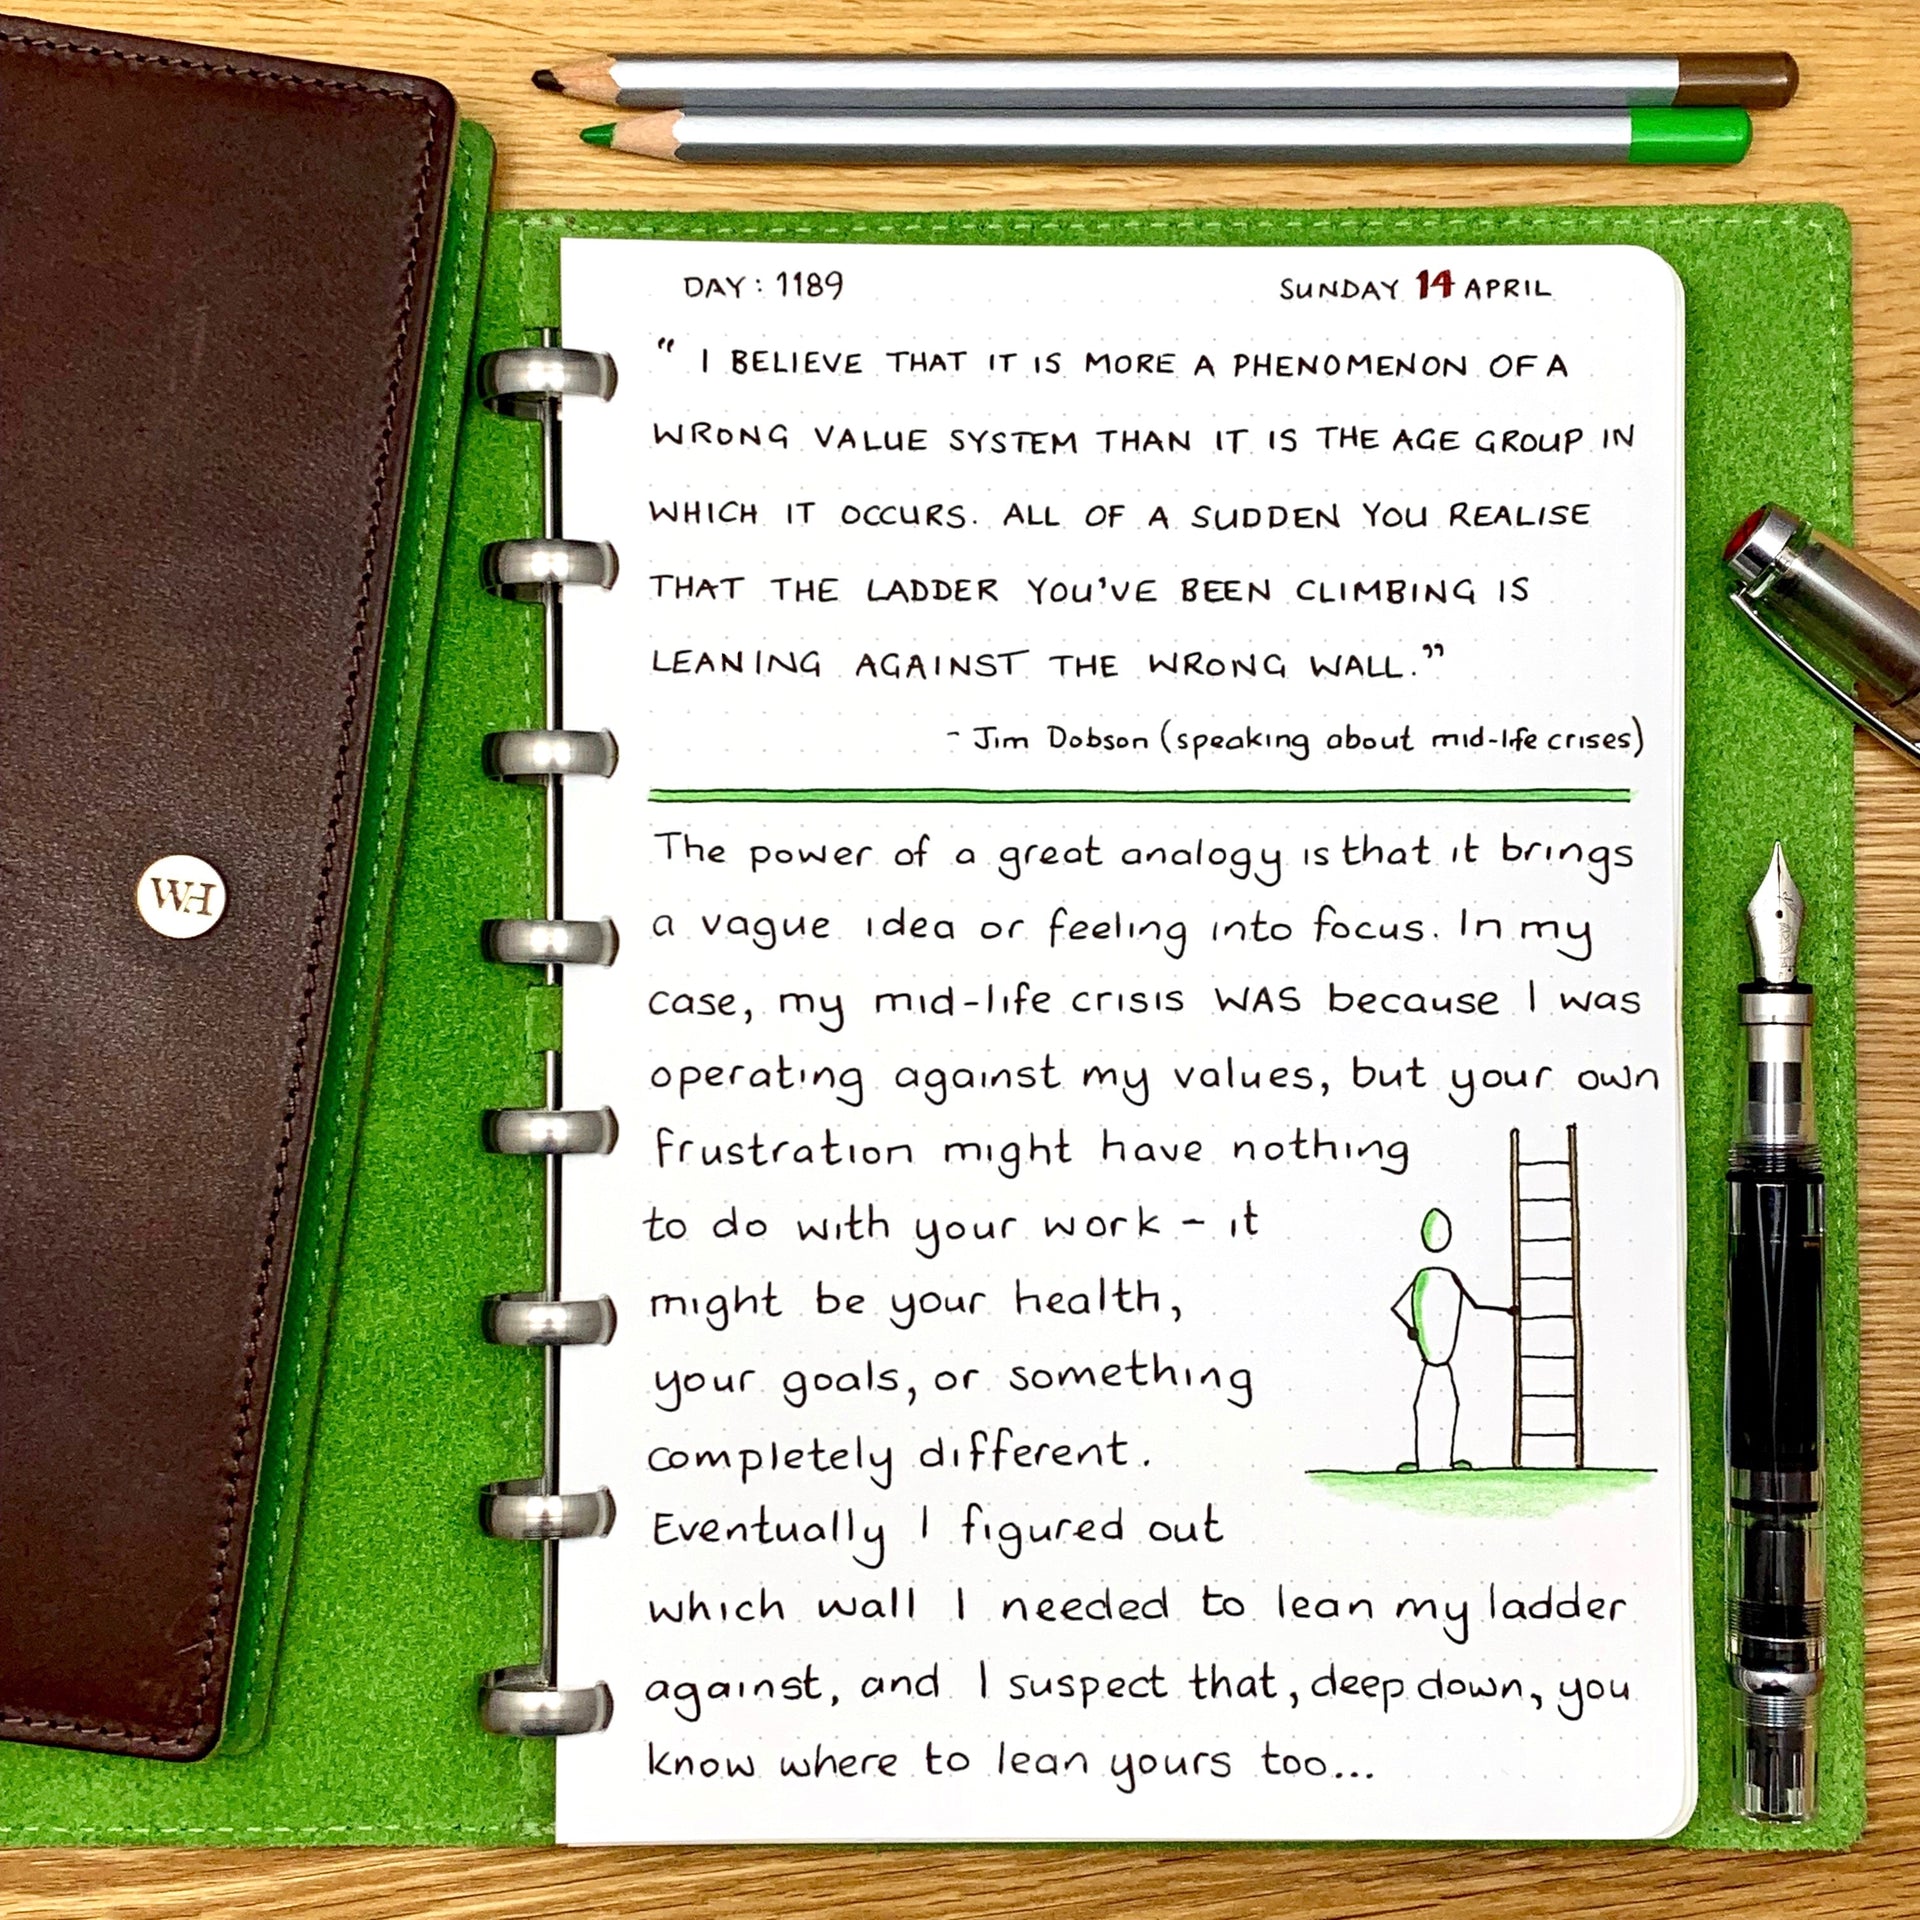 DAY: 1189
SUNDAY 14 APRIL
“ I BELIEVE THAT IT IS MORE A PHENOMENON OF A
WRONG VALUE SYSTEM THAN IT IS THE AGE GROUP IN
WHICH IT OCCURS. ALL OF A SUDDEN YOU REALISE
THAT THE LADDER YOU'VE BEEN CLIMBING IS
LEANING AGAINST THE WRONG WALL.”
- Jim Dobson (speaking about mid-life crises)
The power of a great analogy is that it brings
a vague idea or feeling into focus. In my
case, my mid-life crisis WAS because I was
operating against my values, but your own
frustration might have nothing
to do with your work - it
might be your health,
your goals, or something
completely different.
Eventually I figured out
which wall I needed to lean my ladder
against, and I suspect that, deep down, you
know where to lean yours too...
WH